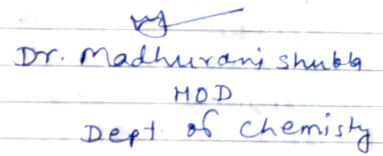 Dr. Madhurani Shukla
HOD
Dept of Chemisty